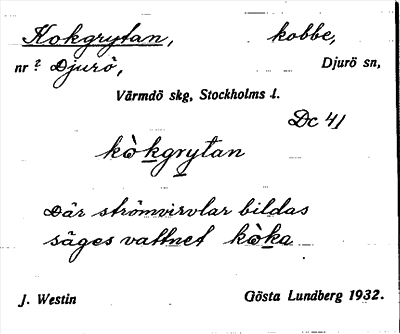 Kokgrytan, kobbe,
nr ? Djurö, Djurö sn,
Värmdö skg, Stockholms l.
Dc 41
kòkgrytan
Där strömvirvlar bildas
säges vattnet kòka
J. Westin Gösta Lundberg 1932.